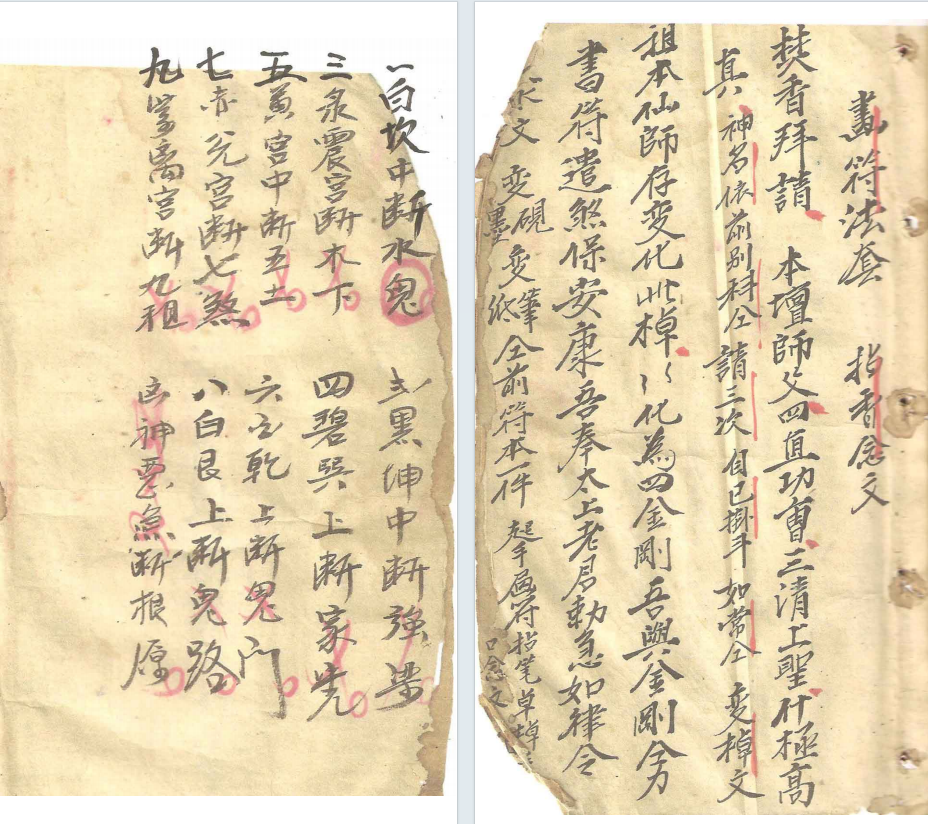 畫符法套　拈香念文
焚香拜請　本壇師父四值功曹三清上聖什極高
真　神名依前别科仝　請三次　自己掛斗　如常仝　変棹文
祖本仙師存変化此棹化為四金剛吾與金剛仝力
書符遣煞保安康吾奉太上老君勅急如律令
水文　変硯　変筆仝前符本一件　起手画符拈笔草棹
墨　紙　口念文
一白坎中断水鬼　弍黒坤中断強梁
三彔震宫断木下　四碧巽上断家先
五黄宫中断五土　六白乾上断鬼门
七赤兊宫断七煞　八白艮上断鬼路
九紫离宫断九祖　凶神悪煞断根原